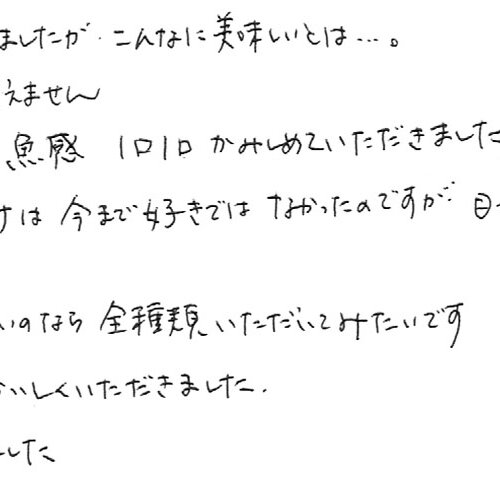 ましたが、こんなに美味いとは…。
えません
魚感 1口1口 かみしめていただきました
けは 今まで好きでは なかったのですが、日
いのなら 全種類いただいてみたいです
おいしくいただきました。
した